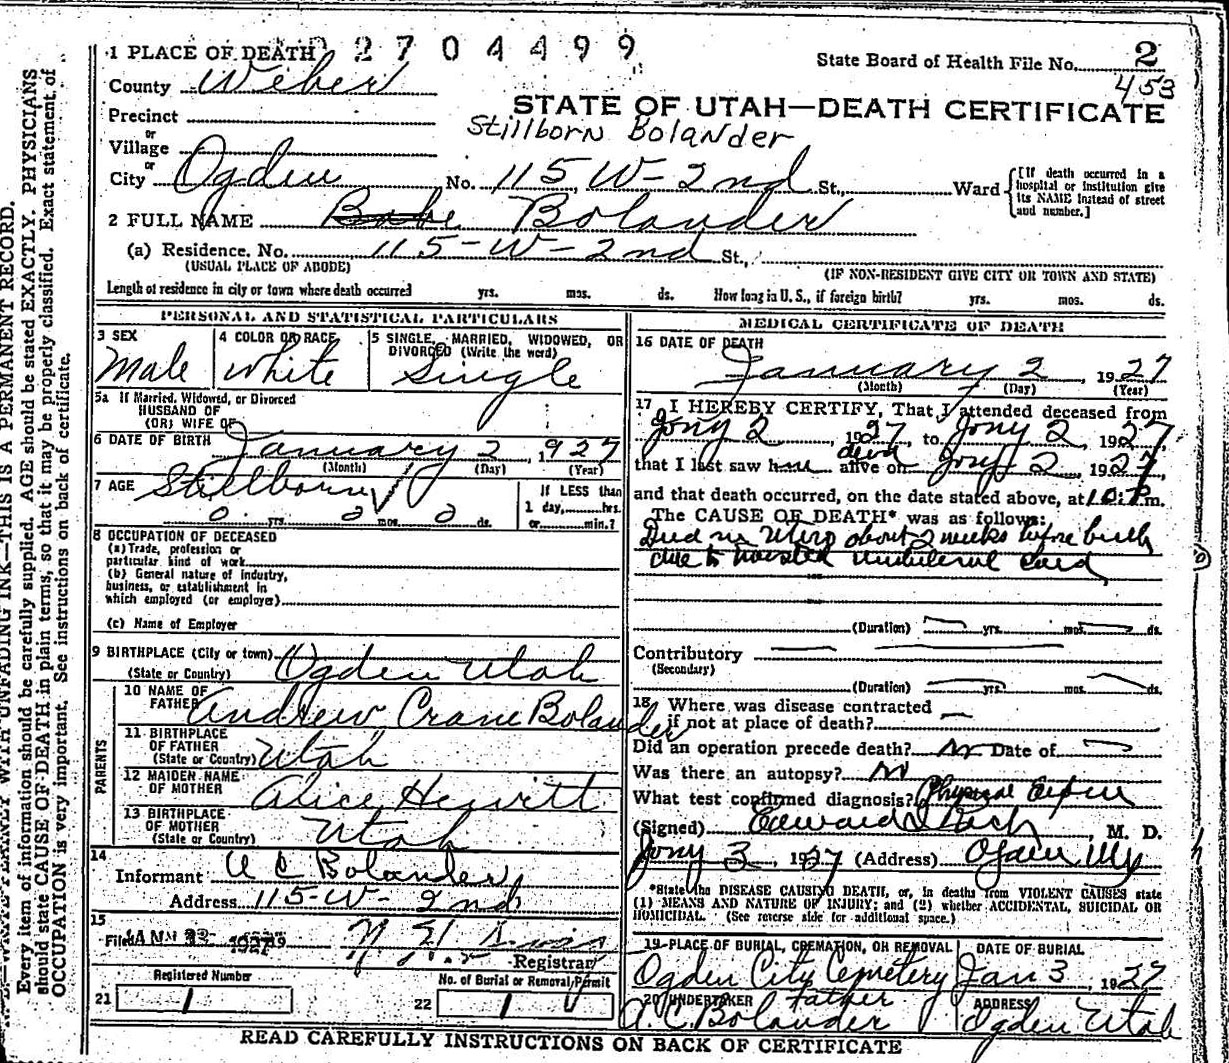 1 PLACE OF DEATH 2 7 0 4 4 9 9
State Board of Health File No. 2
453
County Weber
STATE OF UTAH—DEATH CERTIFICATE
Precinct
Stillborn Bolander
or
Village
or
City Ogden No. 115 W-2nd St., Ward [If death occurred in a hospital or institution give its NAME instead of street and number.]
2 FULL NAME Babe Bolander
(a) Residence. No. 115-W-2nd St.,
(USUAL PLACE OF ABODE) (IF NON-RESIDENT GIVE CITY OR TOWN AND STATE)
Length of residence in city or town where death occurred yrs. mos. ds. How long in U. S., if foreign birth? yrs. mos. ds.
PERSONAL AND STATISTICAL PARTICULARS
3 SEX 4 COLOR OR RACE 5 SINGLE, MARRIED, WIDOWED, OR
DIVORCED (Write the word)
Male White Single
5a If Married, Widowed, or Divorced
HUSBAND OF
(OR) WIFE OF
6 DATE OF BIRTH January 2, 1927
(Month) (Day) (Year)
7 AGE Stillborn If LESS than
0 yrs. mos. ds. 1 day, hrs.
or min.?
8 OCCUPATION OF DECEASED
(a) Trade, profession or
particular kind of work
(b) General nature of industry,
business, or establishment in
which employed (or employer)
(c) Name of Employer
9 BIRTHPLACE (City or town) Ogden Utah
(State or Country)
PARENTS
10 NAME OF
FATHER Andrew Crane Bolander
11 BIRTHPLACE
OF FATHER
(State or Country) Utah
12 MAIDEN NAME
OF MOTHER Alice Hewitt
13 BIRTHPLACE
OF MOTHER
(State or Country) Utah
14
Informant A C Bolander
Address 115-W-2nd
15
Filed JAN 1927
Registrar
Registered Number No. of Burial or Removal Permit
21 1 22 1
MEDICAL CERTIFICATE OF DEATH
16 DATE OF DEATH
January 2, 1927
(Month) (Day) (Year)
17 I HEREBY CERTIFY, That I attended deceased from
Jany 2, 1927, to Jany 2, 1927,
dead
that I last saw alive on Jany 2, 1927,
and that death occurred, on the date stated above, at 10: P.m.
The CAUSE OF DEATH* was as follows:
Died in Utero about 2 weeks before birth
due to twisted umbilical cord
(Duration) yrs. mos. ds.
Contributory
(Secondary)
(Duration) yrs. mos. ds.
18 Where was disease contracted
if not at place of death?
Did an operation precede death? No Date of
Was there an autopsy? No
What test confirmed diagnosis? Physical
(Signed) Edward M. D.
Jany 3, 1927 (Address) Ogden
*State the DISEASE CAUSING DEATH, or, in deaths from VIOLENT CAUSES state
(1) MEANS AND NATURE OF INJURY; and (2) whether ACCIDENTAL, SUICIDAL OR
HOMICIDAL. (See reverse side for additional space.)
19 PLACE OF BURIAL, CREMATION, OR REMOVAL DATE OF BURIAL
Ogden City Cemetery Jan 3, 1927
20 UNDERTAKER Father ADDRESS
A. C. Bolander Ogden Utah
READ CAREFULLY INSTRUCTIONS ON BACK OF CERTIFICATE
WRITE PLAINLY WITH UNFADING INK—THIS IS A PERMANENT RECORD.
Every item of information should be carefully supplied. AGE should be stated EXACTLY. PHYSICIANS
should state CAUSE OF DEATH in plain terms, so that it may be properly classified. Exact statement of
OCCUPATION is very important. See instructions on back of certificate.